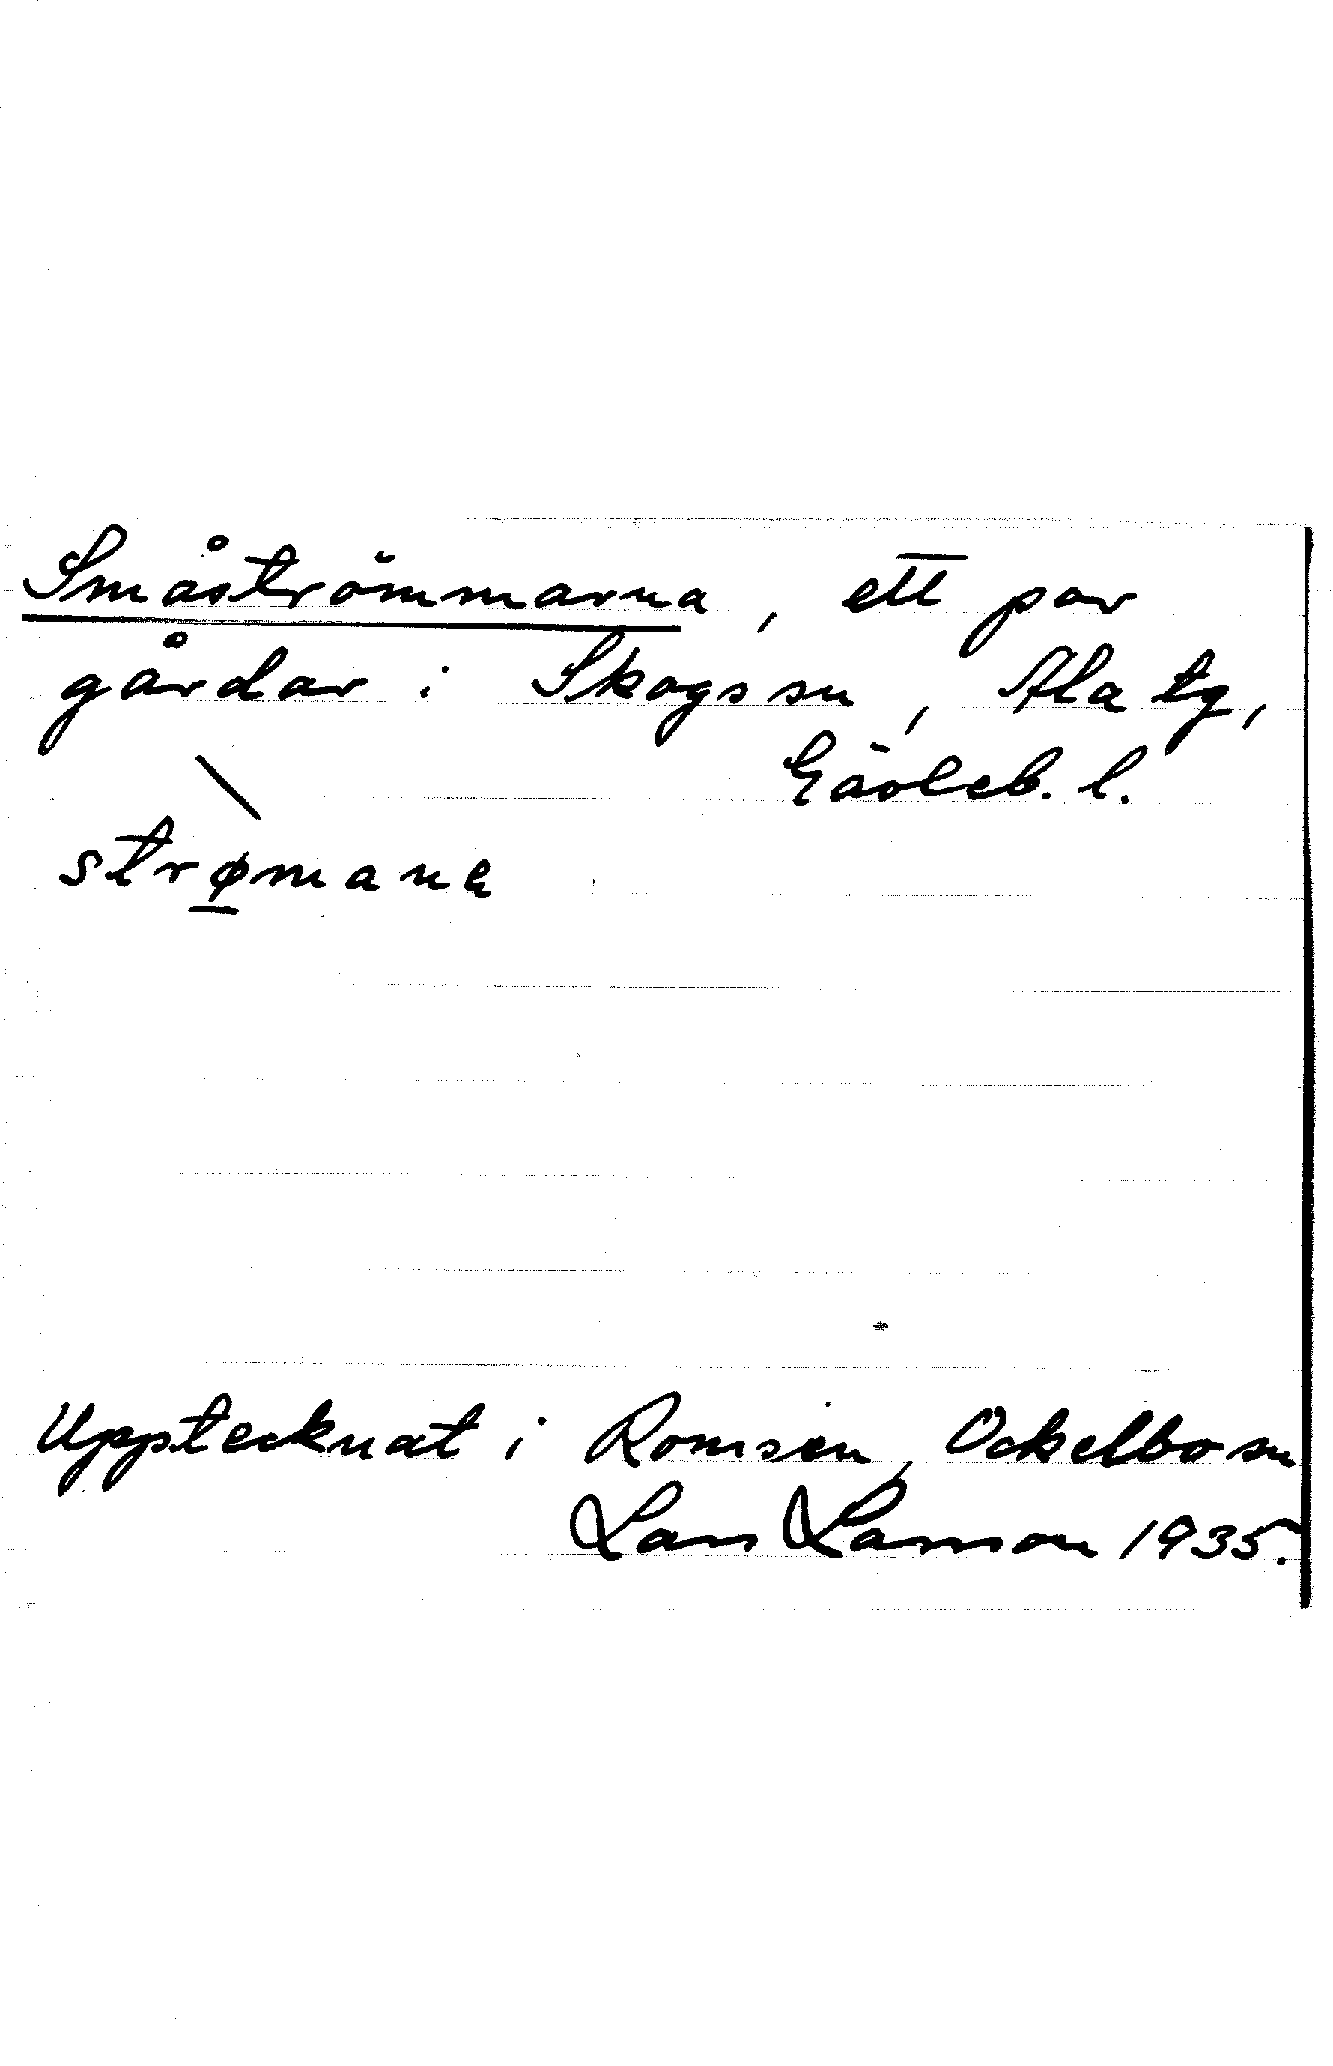 Småströmmarna, ett par
gårdar i Skogs sn, Ala tg,
Gävleb. l.
strømana
Upptecknat i Romsen, Ockelbo sn
Lars Larsson 1935.